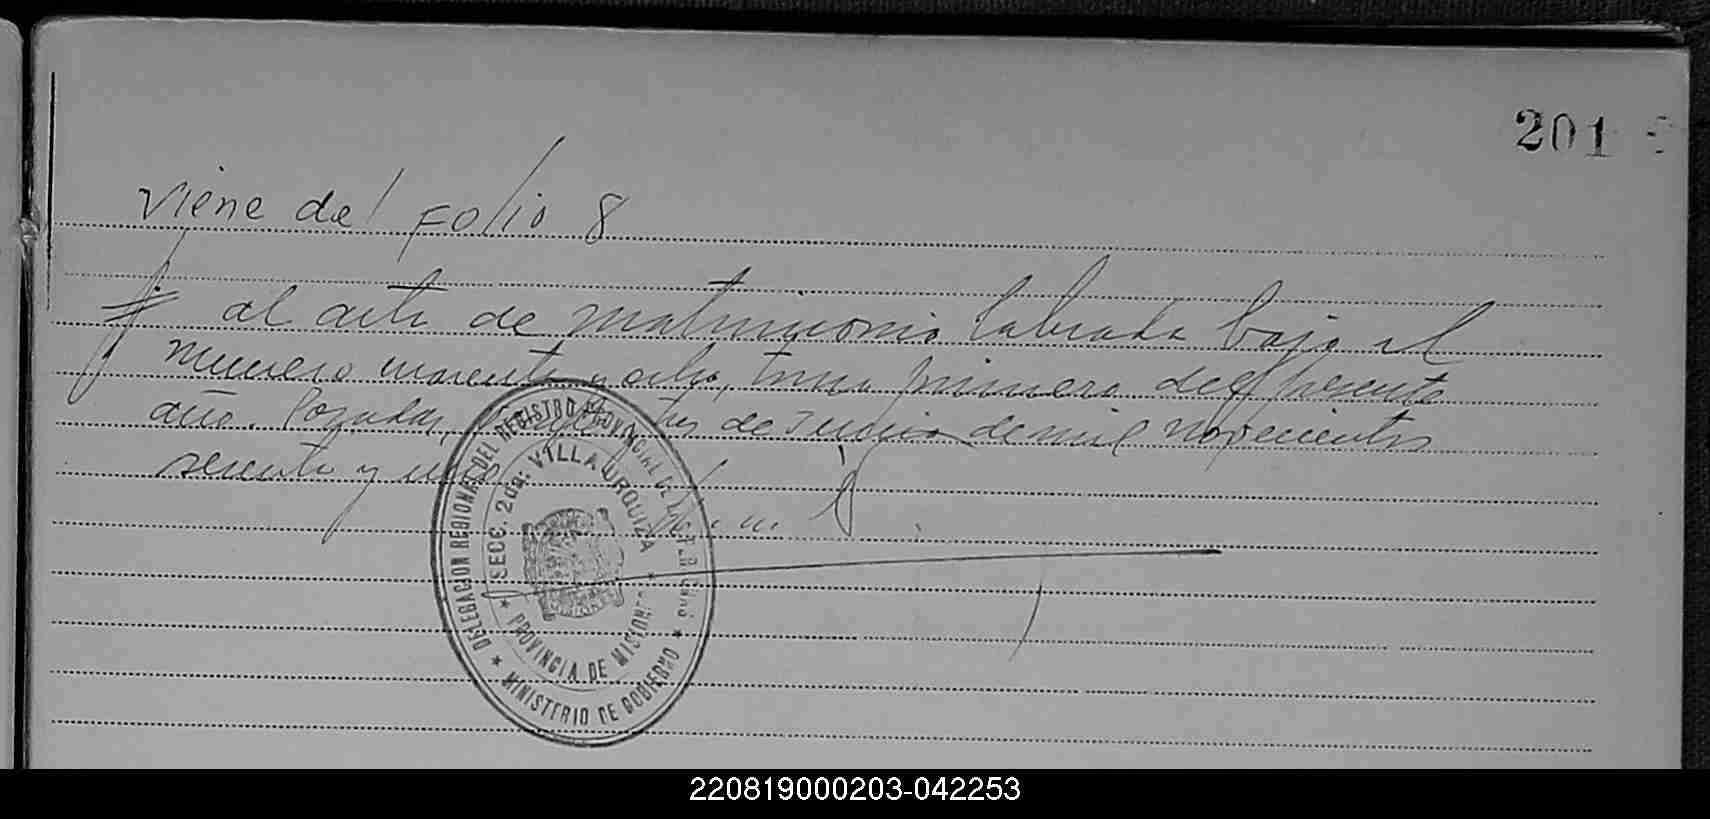 201
viene del Folio 8
al acta de matrimonio labrada bajo el
numero cuarenta y ocho, tomo primero del presente
año. Posadas, de Junio de mil novecientos
sesenta y uno
DELEGACION REGIONAL DEL REGISTRO PROVINCIAL DE LAS PERSONAS
SECC. 2da: VILLA URQUIZA
* PROVINCIA DE MISIONES *
* MINISTERIO DE GOBIERNO *
220819000203-042253